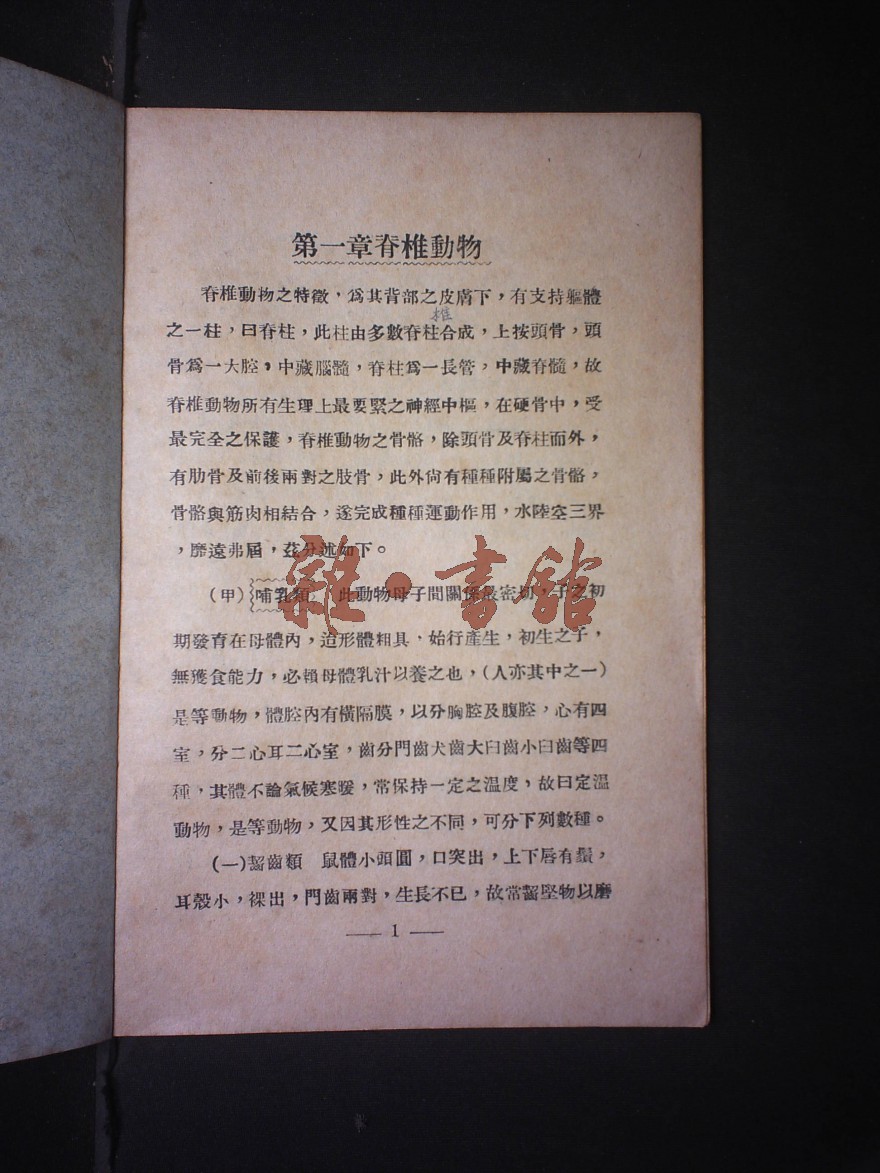 第一章脊椎動物
脊椎動物之特徵，爲其背部之皮膚下，有支持軀體
椎
之一柱，曰脊柱，此柱由多數脊柱合成，上按頭骨，頭
骨爲一大腔，中藏腦髓，脊柱爲一長管，中藏脊髓，故
脊椎動物所有生理上最要緊之神經中樞，在硬骨中，受
最完全之保護，脊椎動物之骨骼，除頭骨及脊柱而外，
有肋骨及前後兩對之肢骨，此外尙有種種附屬之骨骼，
骨骼與筋肉相結合，遂完成種種運動作用，水陸空三界
，靡遠弗屆，茲分述如下。
雜·書館
（甲）哺乳類　此動物母子間關係最密切，子之初
期發育在母體內，迨形體粗具，始行產生，初生之子，
無獲食能力，必賴母體乳汁以養之也，（人亦其中之一）
是等動物，體腔內有橫隔膜，以分胸腔及腹腔，心有四
室，分二心耳二心室，齒分門齒犬齒大臼齒小臼齒等四
種，其體不論氣候寒暖，常保持一定之溫度，故曰定溫
動物，是等動物，又因其形性之不同，可分下列數種。
（一）齧齒類　鼠體小頭圓，口突出，上下唇有鬚，
耳殼小，裸出，門齒兩對，生長不已，故常齧堅物以磨
— 1 —